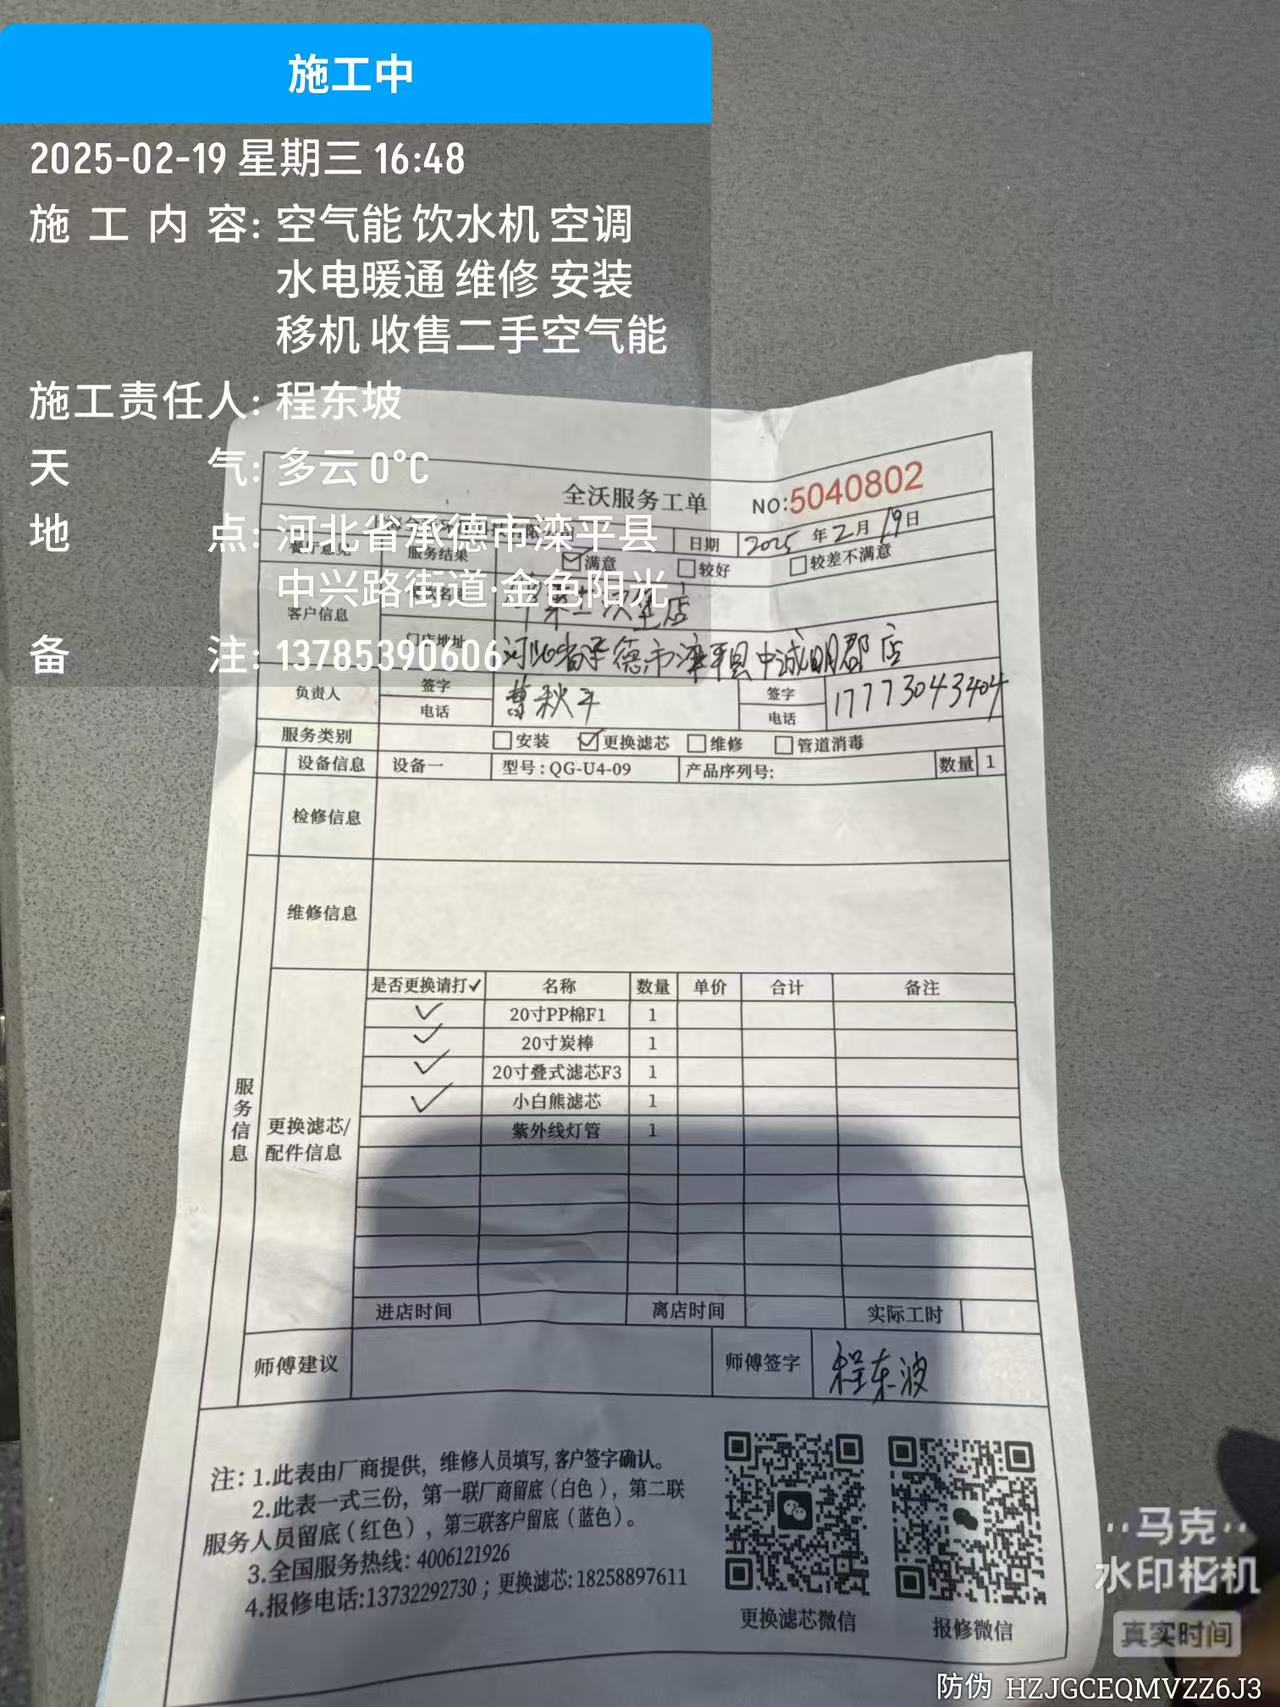 施工中
2025-02-19 星期三 16:48
施工内容: 空气能 饮水机 空调
水电暖通 维修 安装
移机 收售二手空气能
施工责任人: 程东坡
天气: 多云 0°C
地点: 河北省承德市滦平县
中兴路街道·金色阳光
备注: 13785390606
全沃服务工单 NO:5040802
日期 2025 年 2 月 19 日
餐厅意见 服务结果 ☑满意 □较好 □较差不满意
客户信息
门店地址 河北省承德市滦平县中诚明郡店
负责人 签字 电话 签字 电话 17773043404
服务类别 □安装 ☑更换滤芯 □维修 □管道消毒
设备信息 设备一 型号:QG-U4-09 产品序列号: 数量 1
检修信息
维修信息
是否更换请打✓ 名称 数量 单价 合计 备注
✓ 20寸PP棉F1 1
✓ 20寸炭棒 1
✓ 20寸叠式滤芯F3 1
✓ 小白熊滤芯 1
紫外线灯管 1
服务信息
更换滤芯/
配件信息
进店时间 离店时间 实际工时
师傅建议 师傅签字 程东波
注: 1.此表由厂商提供, 维修人员填写, 客户签字确认。
2.此表一式三份, 第一联厂商留底(白色), 第二联
服务人员留底(红色), 第三联客户留底(蓝色)。
3.全国服务热线: 4006121926
4.报修电话:13732292730 ; 更换滤芯: 18258897611
更换滤芯微信 报修微信
马克
水印相机
真实时间
防伪 HZJGCEQMVZZ6J3